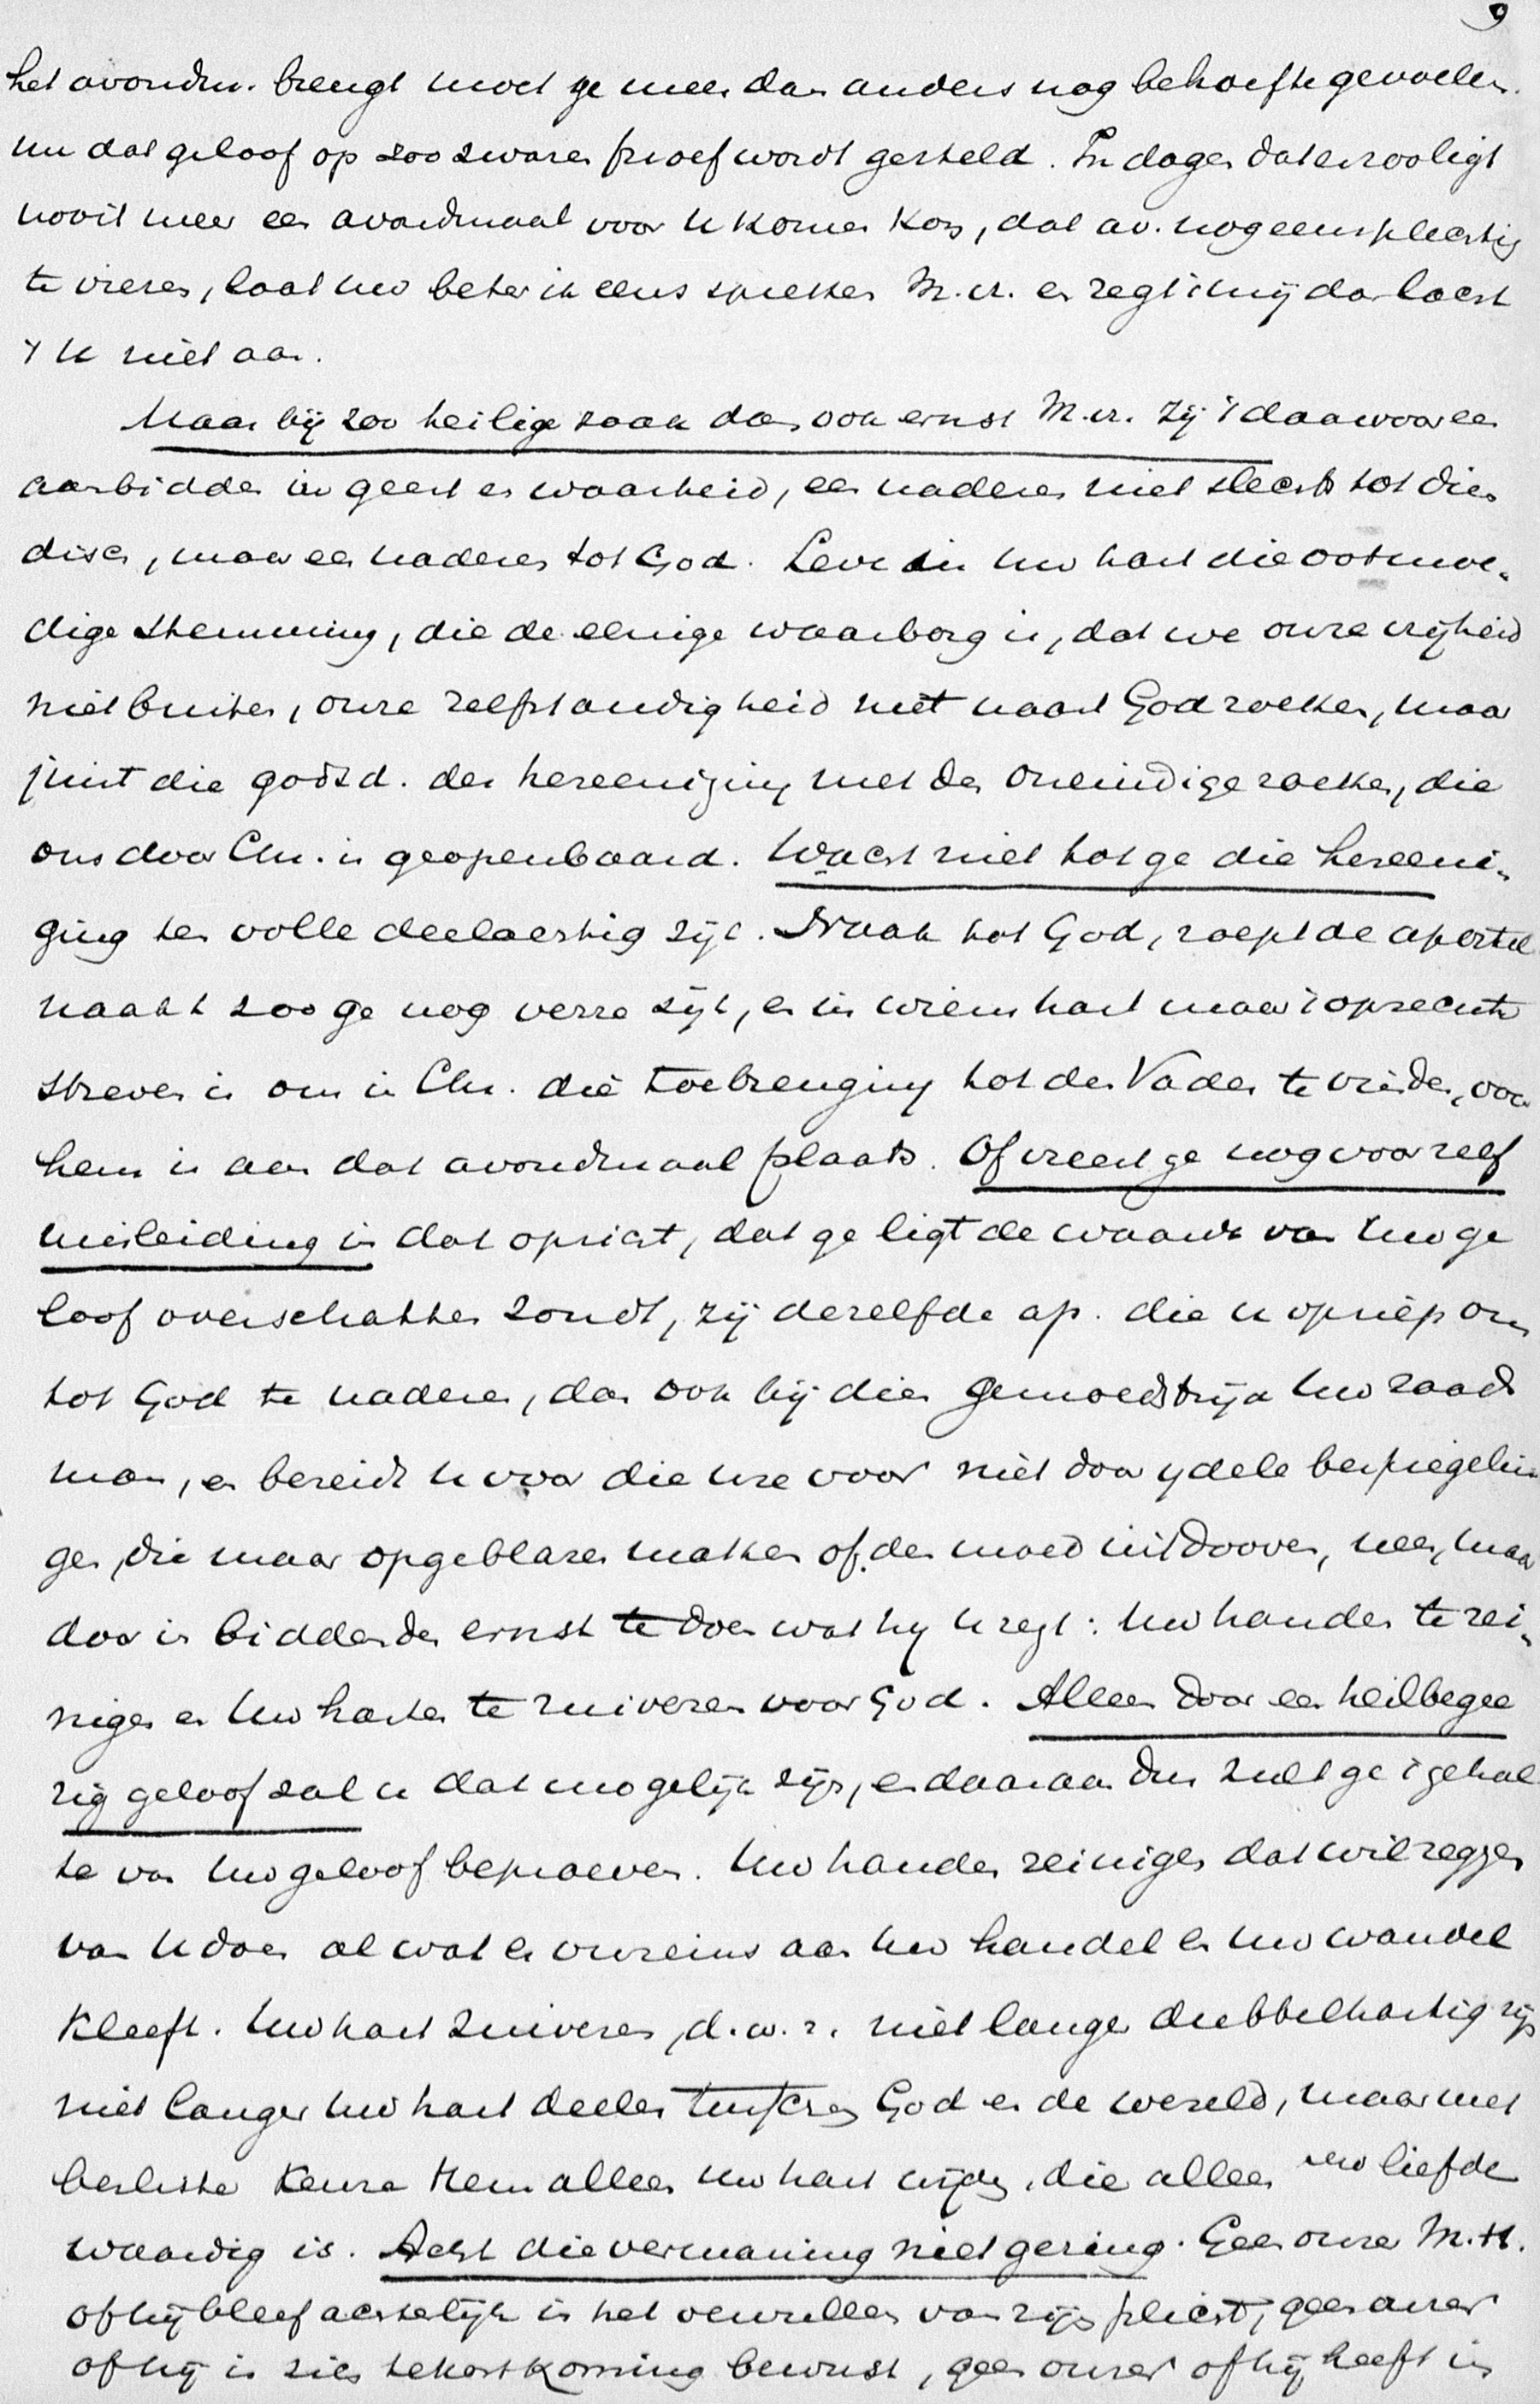 9
het avondm. brengt moet ge meer dan anders nog behoefte gevoelen.
nu dat geloof op zoo zware proef wordt gesteld. In dagen dat er
nooit meer een avondmaal voor U komen kon, dat av. nog eens plechtig
te vieren, laat uw beter ik eens spreken M.vr. en zegt 't mij dan lacht
't U niet aan.
Maar bij zoo heilige zaak dan ook ernst M.vr. Zij 't daarvoor een
aanbidden in geest en waarheid, een naderen niet slechts tot dien
disch, maar een naderen tot God. Leve in uw hart die ootmoe-
dige stemming, die de eenige waarborg is, dat we onze vrijheid
niet buiten, onze zelfstandigheid niet naast God zoeken, maar
juist die godsd. der hereeniging met den Oneindige zoeken, die
ons door Chr. is geopenbaard. Wacht niet tot ge die hereeni-
ging ten volle deelachtig zijt. Naak tot God, roept de apostel
naakt zoo ge nog verre zijt, en in wiens hart maar 't oprechte
streven is om in Chr. die toebrenging tot den Vader te vinden, voor
hem is aan dat avondmaal plaats. Of vreest ge nog voor zelf
misleiding in dat opzicht, dat ge ligt de waarde van Uw ge
loof overschatten zoudt, zij dezelfde ap. die u opriep om
tot God te naderen, dan ook bij dien gemoedstrijd Uw raads
man, en bereidt U voor die ure voor niet door ydele bespiegelin
gen, die maar opgeblazen maken of den moed uitdooven, neen, maar
door in biddenden ernst te doen wat hij U zegt: Uw handen te rei-
nigen en Uw harten te zuiveren voor God. Alleen door een heilbegee
rig geloof zal u dat mogelijk zijn, en daaraan dus zult ge 't gehal
te van Uw geloof beproeven. Uw handen reinigen dat wil zeggen
van U doen al wat er onreins aan Uw handel en Uw wandel
kleeft. Uw hart zuiveren, d.w.z. niet langer dubbelhartig zijn
niet langer Uw hart deelen tusschen God en de wereld, maar met
besliste keuze Hem alleen Uw hart wijden, die alleen uw liefde
waardig is. Acht die vermaning niet gering. Geen onzer M.H.
of hij bleef achterlijk in het vervullen van zijn plicht, geen onzer
of hij is zich tekortkoming bewust, geen onzer of hij heeft in